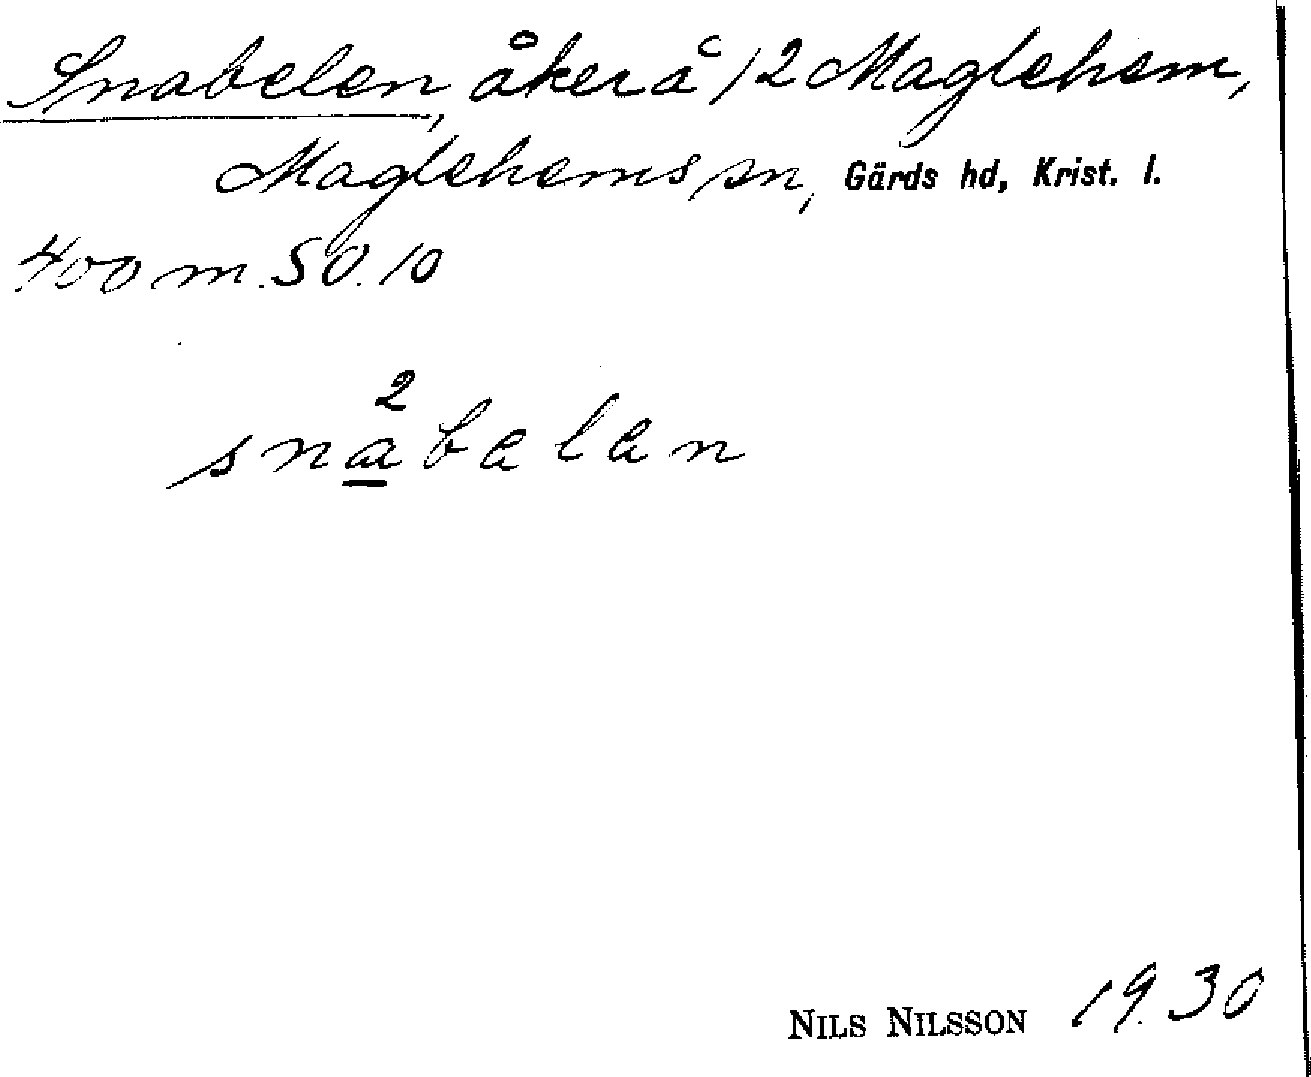 Snabelen, åker å 12 Maglehem,
Maglehems sn, Gärds hd, Krist. l.
400 m. SO. 10
2
snabələn
NILS NILSSON 1930